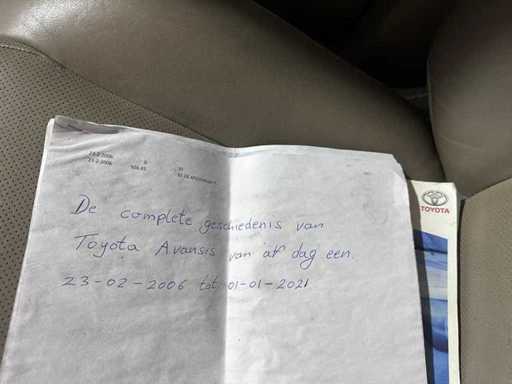 23-2-2006
21-2-2006
De complete geschiedenis van
Toyota Avansis van af dag een.
23-02-2006 tot 01-01-2021
TOYOTA